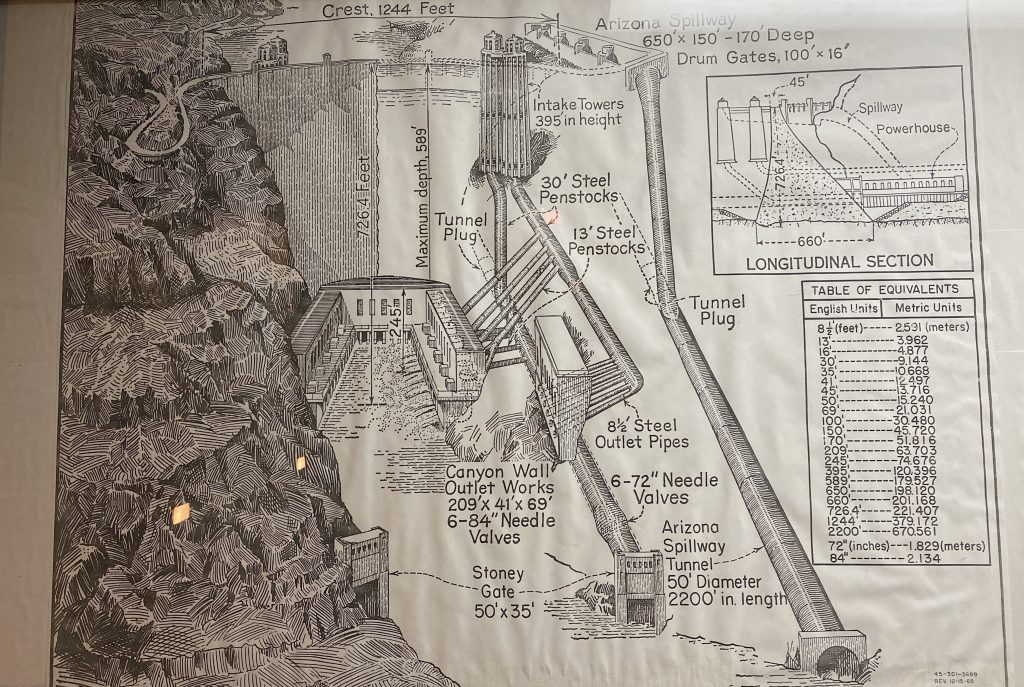 Crest, 1244 Feet
Arizona Spillway
650' x 150' - 170' Deep
Drum Gates, 100' x 16'
Intake Towers
395' in height
726.4 Feet
Maximum depth, 589'
30' Steel
Penstocks
Tunnel
Plug
13' Steel
Penstocks
245'
Tunnel
Plug
8½' Steel
Outlet Pipes
Canyon Wall
Outlet Works
209' x 41' x 69'
6-84" Needle
Valves
6-72" Needle
Valves
Arizona
Spillway
Tunnel
50' Diameter
2200' in. length
Stoney
Gate
50' x 35'
45'
Spillway
Powerhouse
726.4'
660'
LONGITUDINAL SECTION
TABLE OF EQUIVALENTS
English Units Metric Units
8½' (feet) ----- 2.591 (meters)
13' ----- 3.962
16' ----- 4.877
30' ----- 9.144
35' ----- 10.668
41' ----- 12.497
45' ----- 13.716
50' ----- 15.240
69' ----- 21.031
100' ----- 30.480
150' ----- 45.720
170' ----- 51.816
209' ----- 63.703
245' ----- 74.676
395' ----- 120.396
589' ----- 179.527
650' ----- 198.120
660' ----- 201.168
726.4' ----- 221.407
1244' ----- 379.172
2200' ----- 670.561
72" (inches) --- 1.829 (meters)
84" ----- 2.134
45-301-3699
REV. 10-15-65